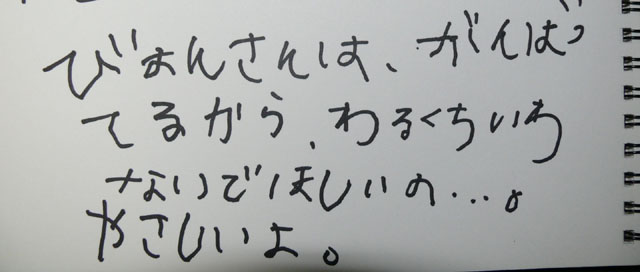 びょんさんは、がんばっ
てるから、わるくちいわ
ないでほしいの…。
やさしいよ。